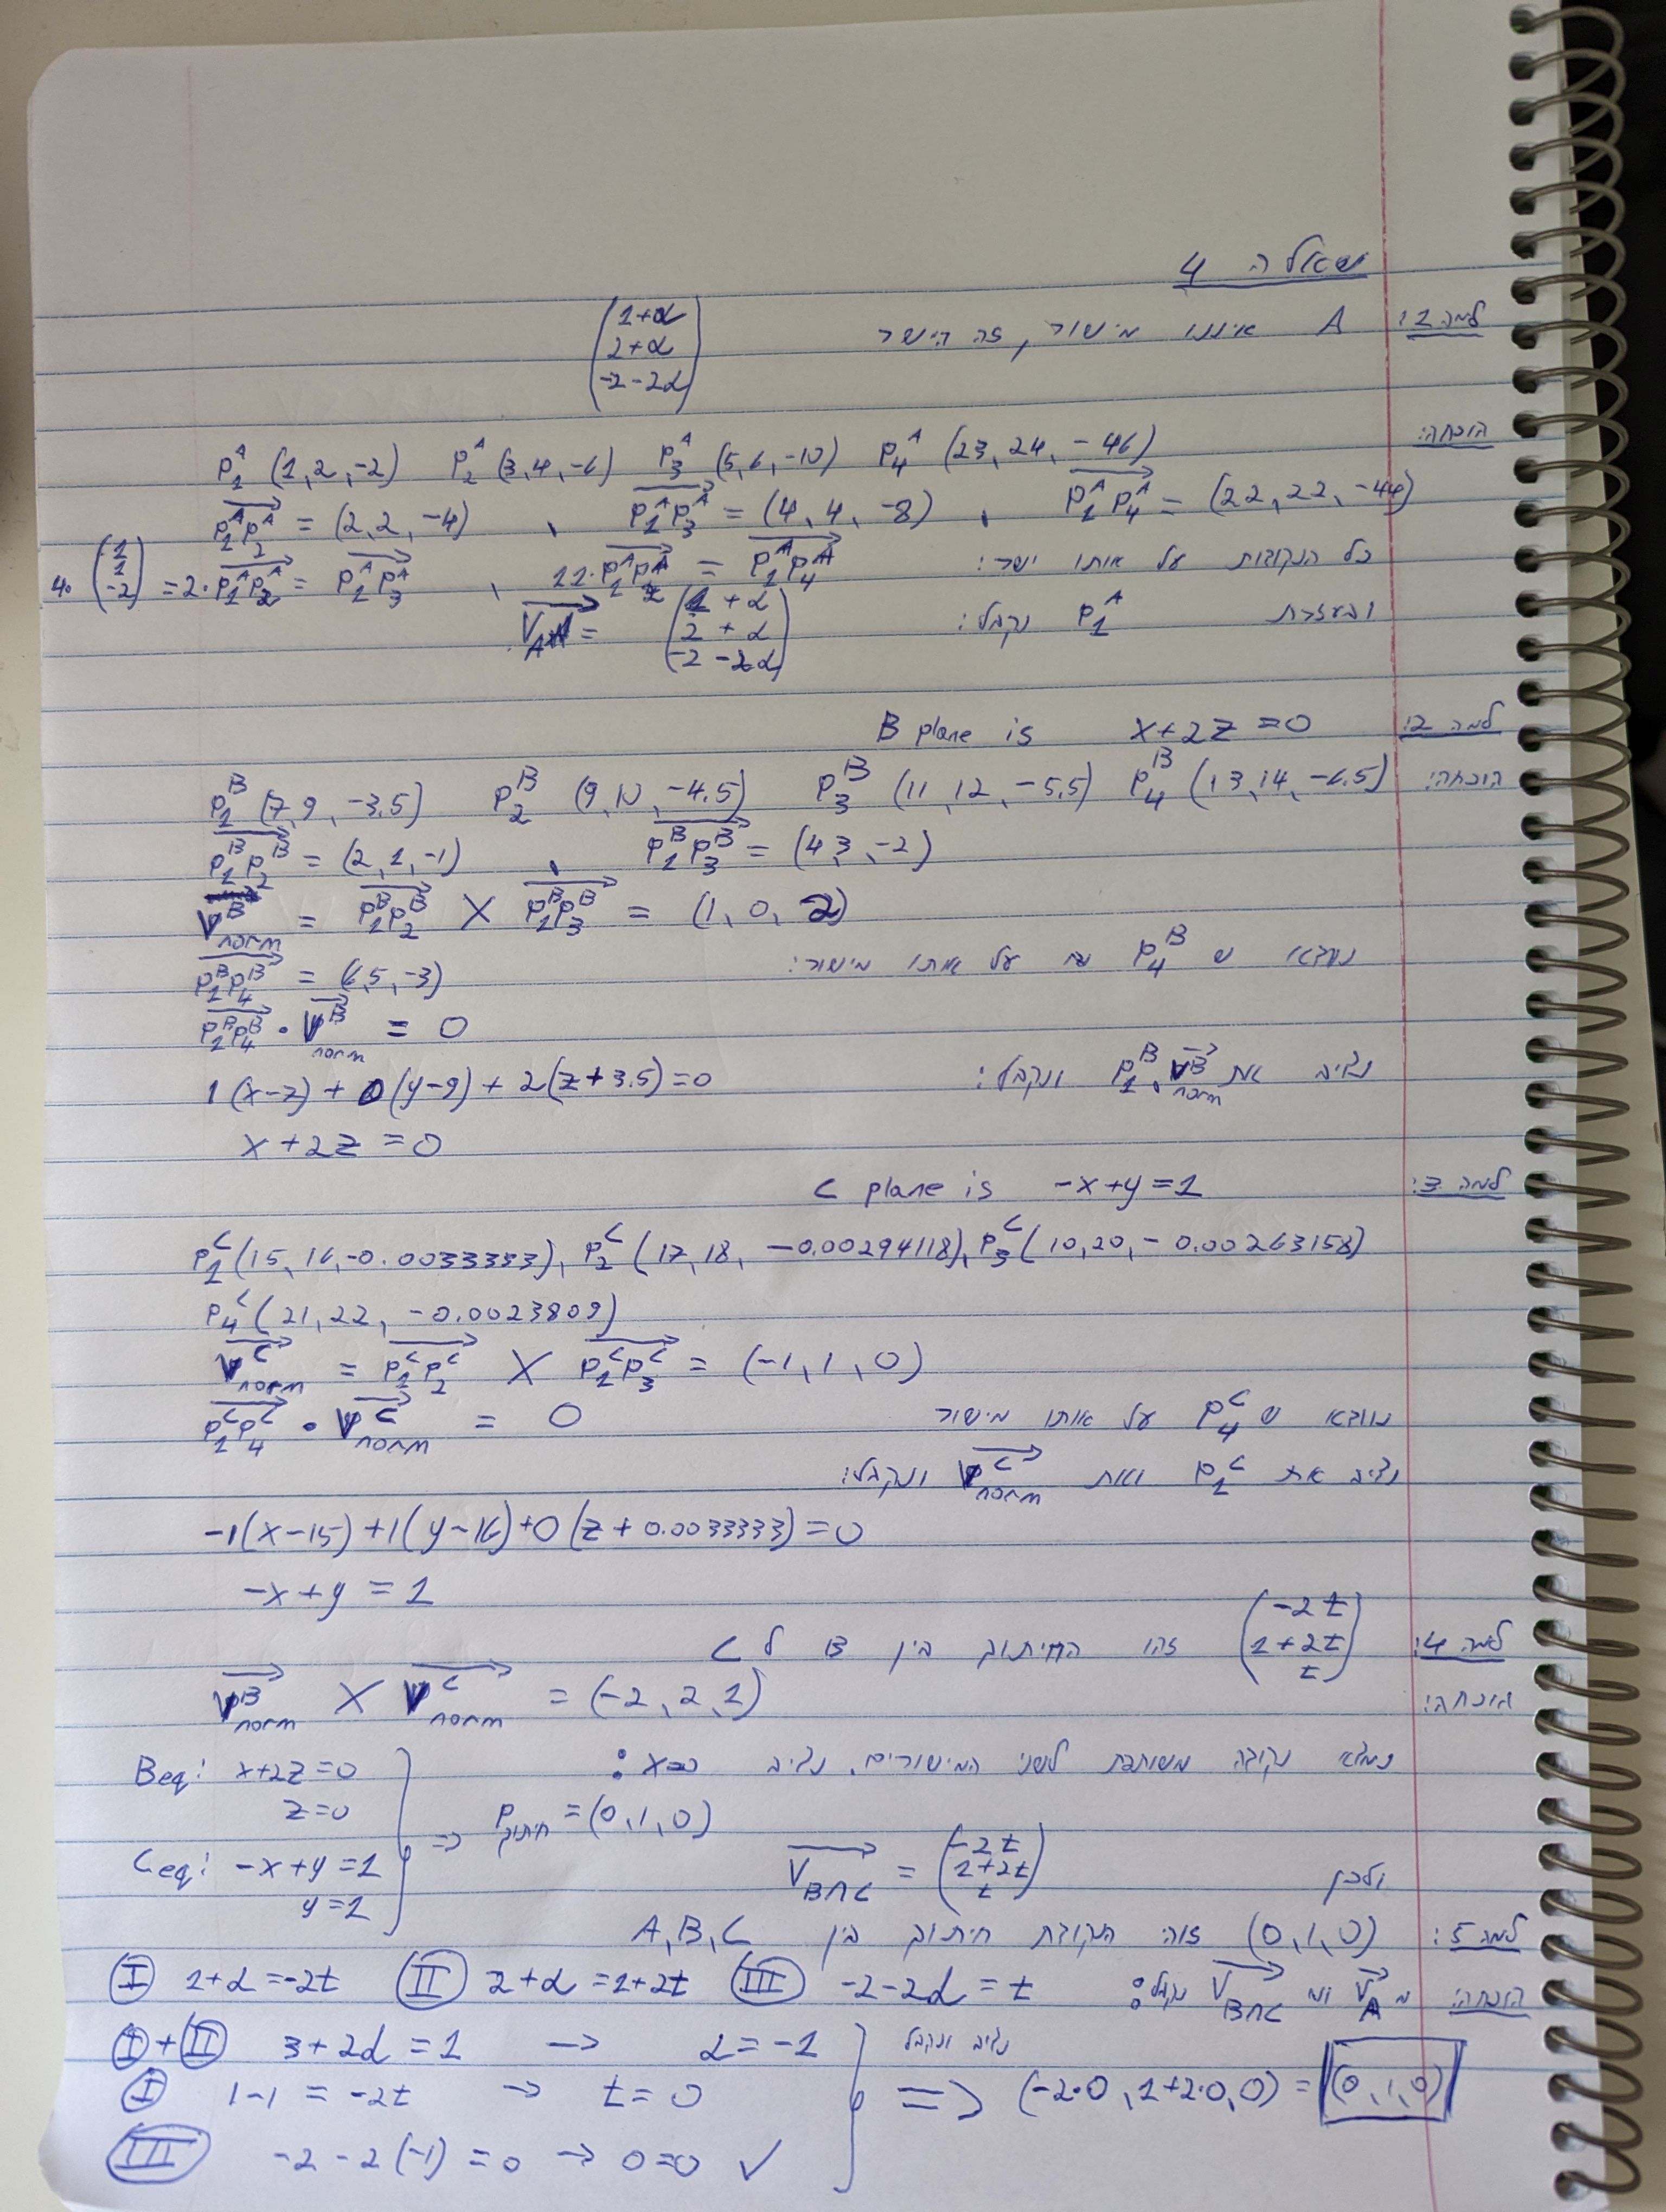 שאלה 4
למה 1: A איננו מישור, זה הישר $\begin{pmatrix} 1+α \\ 2+α \\ -2-2α \end{pmatrix}$
הוכחה:
$P_1^A (1,2,-2)$ $P_2^A (3,4,-6)$ $P_3^A (5,6,-10)$ $P_4^A (23,24,-46)$
$\overrightarrow{P_1^A P_2^A} = (2,2,-4)$ , $\overrightarrow{P_1^A P_3^A} = (4,4,-8)$ , $\overrightarrow{P_1^A P_4^A} = (22,22,-44)$
כל הנקודות על אותו ישר: $11 \cdot \overrightarrow{P_1^A P_2^A} = \overrightarrow{P_1^A P_4^A}$ , $4 \cdot \begin{pmatrix} 1 \\ 1 \\ -2 \end{pmatrix} = 2 \cdot \overrightarrow{P_1^A P_2^A} = \overrightarrow{P_1^A P_3^A}$
ובעזרת $P_1^A$ נקבל: $\overrightarrow{V_A} = \begin{pmatrix} 1+α \\ 2+α \\ -2-2α \end{pmatrix}$
למה 2: B plane is x+2z=0
הוכחה: $P_1^B (7,9,-3.5)$ $P_2^B (9,10,-4.5)$ $P_3^B (11,12,-5.5)$ $P_4^B (13,14,-6.5)$
$\overrightarrow{P_1^B P_2^B} = (2,1,-1)$ , $\overrightarrow{P_1^B P_3^B} = (4,3,-2)$
$\overrightarrow{V^B_{norm}} = \overrightarrow{P_1^B P_2^B} × \overrightarrow{P_1^B P_3^B} = (1,0,2)$
ש $P_4^B$ על אותו מישור:
$\overrightarrow{P_1^B P_4^B} = (6,5,-3)$
$\overrightarrow{P_1^B P_4^B} \cdot \overrightarrow{V^B_{norm}} = 0$
נציב את $P_1^B, \overrightarrow{V^B_{norm}}$ ונקבל:
1(x-7) + 0(y-9) + 2(z+3.5) = 0
x+2z = 0
למה 3: C plane is -x+y=1
$P_1^C (15,16,-0.0033333)$, $P_2^C (17,18,-0.00294118)$, $P_3^C (10,20,-0.00263158)$
$P_4^C (21,22,-0.0023809)$
$\overrightarrow{V^C_{norm}} = \overrightarrow{P_1^C P_2^C} × \overrightarrow{P_1^C P_3^C} = (-1,1,0)$
נוודא ש $P_4^C$ על אותו מישור
$\overrightarrow{P_1^C P_4^C} \cdot \overrightarrow{V^C_{norm}} = 0$
נציב את $P_1^C$ ואת $\overrightarrow{V^C_{norm}}$ ונקבל:
-1(x-15) + 1(y-16) + 0(z+0.0033333) = 0
-x+y = 1
למה 4: $\begin{pmatrix} -2t \\ 1+2t \\ t \end{pmatrix}$ זהו החיתוך בין B ל C
הוכחה:
$\overrightarrow{V^B_{norm}} × \overrightarrow{V^C_{norm}} = (-2,2,1)$
נמצא נקודה משותפת לשני המישורים, נציב x=0:
Beq: x+2z=0
z=0
Ceq: -x+y=1
y=1
⇒ $P_{חיתוך} = (0,1,0)$
ולכן $\overrightarrow{V_{B∩C}} = \begin{pmatrix} -2t \\ 1+2t \\ t \end{pmatrix}$
למה 5: (0,1,0) זוהי הנקודת חיתוך בין A,B,C
הוכחה: מ $\overrightarrow{V_A}$ ומ $\overrightarrow{V_{B∩C}}$ נקבל:
Ⓘ 1+α=-2t Ⅱ 2+α=1+2t Ⅲ -2-2α=t
Ⓘ+Ⅱ 3+2α=1 → α=-1
Ⓘ 1-1=-2t → t=0
Ⅲ -2-2(-1)=0 → 0=0 ✓
נציב ונקבל
⇒ (-2·0, 1+2·0, 0) = (0,1,0)